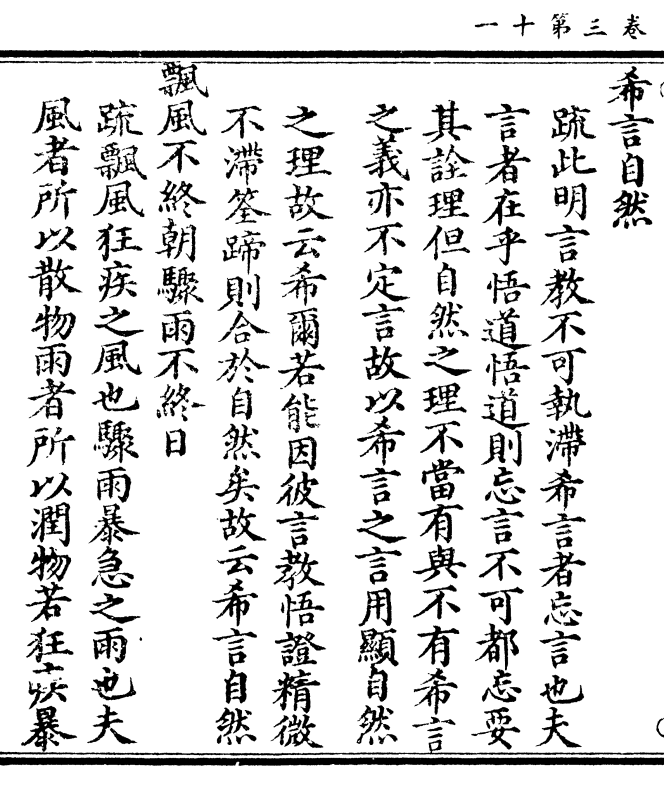 卷三第十一
希言自然
疏此明言教不可執滯希言者忘言也夫
言者在乎悟道悟道則忘言不可都忘要
其詮理但自然之理不當有與不有希言
之義亦不定言故以希言之言用顯自然
之理故云希爾若能因彼言教悟證精微
不滯筌蹄則合於自然矣故云希言自然
飄風不終朝驟雨不終日
疏飄風狂疾之風也驟雨暴急之雨也夫
風者所以散物雨者所以潤物若狂疾暴